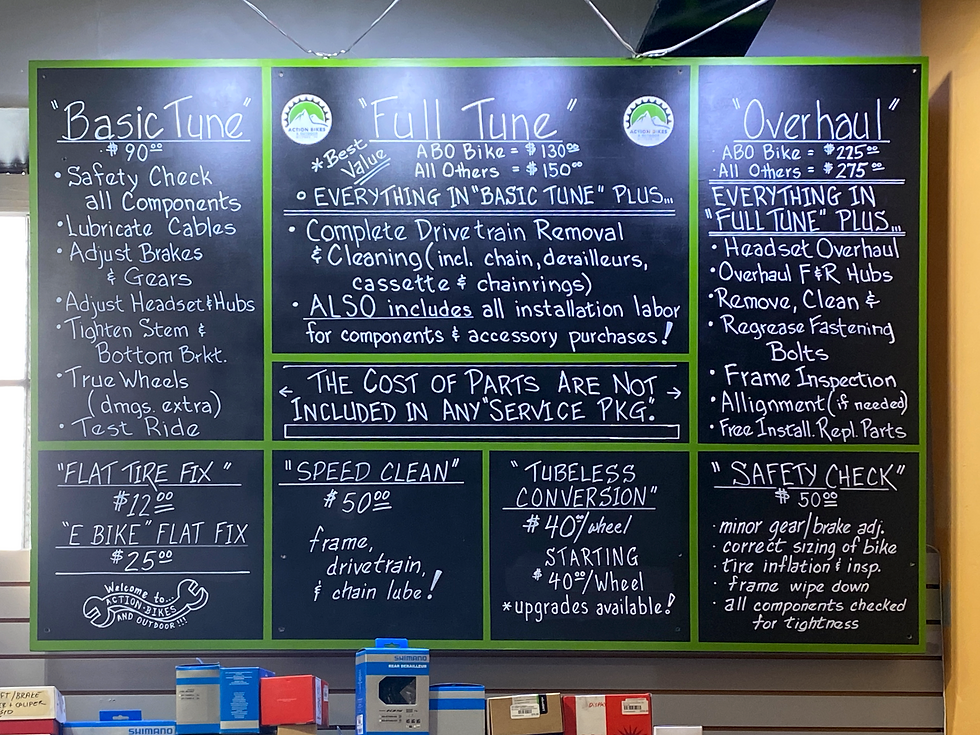 "Basic Tune"
$90.00
• Safety Check
all Components
• Lubricate Cables
• Adjust Brakes
& Gears
• Adjust Headset & Hubs
• Tighten Stem &
Bottom Brkt.
• True Wheels
(dmgs. extra)
• Test Ride
ACTION BIKES
"Full Tune"
ACTION BIKES
*Best
Value
ABO Bike = $130.00
All Others = $150.00
• EVERYTHING IN "BASIC TUNE" PLUS...
• Complete Drivetrain Removal
& Cleaning (incl. chain, derailleurs,
cassette & chainrings)
• ALSO includes all installation labor
for components & accessory purchases!
← THE COST OF PARTS ARE NOT →
INCLUDED IN ANY "SERVICE PKG".
"Overhaul"
ABO Bike = $225.00
All Others = $275.00
EVERYTHING IN
"FULL TUNE" PLUS...
• Headset Overhaul
• Overhaul F&R Hubs
• Remove, Clean &
• Regrease Fastening
Bolts
• Frame Inspection
• Allignment (if needed)
• Free Install. Repl. Parts
"FLAT TIRE FIX"
$12.00
"E BIKE" FLAT FIX
$25.00
Welcome to...
ACTION-BIKES
AND OUTDOOR!!!
"SPEED CLEAN"
$50.00
frame,
drivetrain,
& chain lube!
"TUBELESS
CONVERSION"
$40.00/wheel
STARTING
$40.00/Wheel
*upgrades available!
"SAFETY CHECK"
$50.00
· minor gear/brake adj.
· correct sizing of bike
· tire inflation & insp.
· frame wipe down
· all components checked
for tightness
SHIMANO
REAR DERAILLEUR
SHIMANO